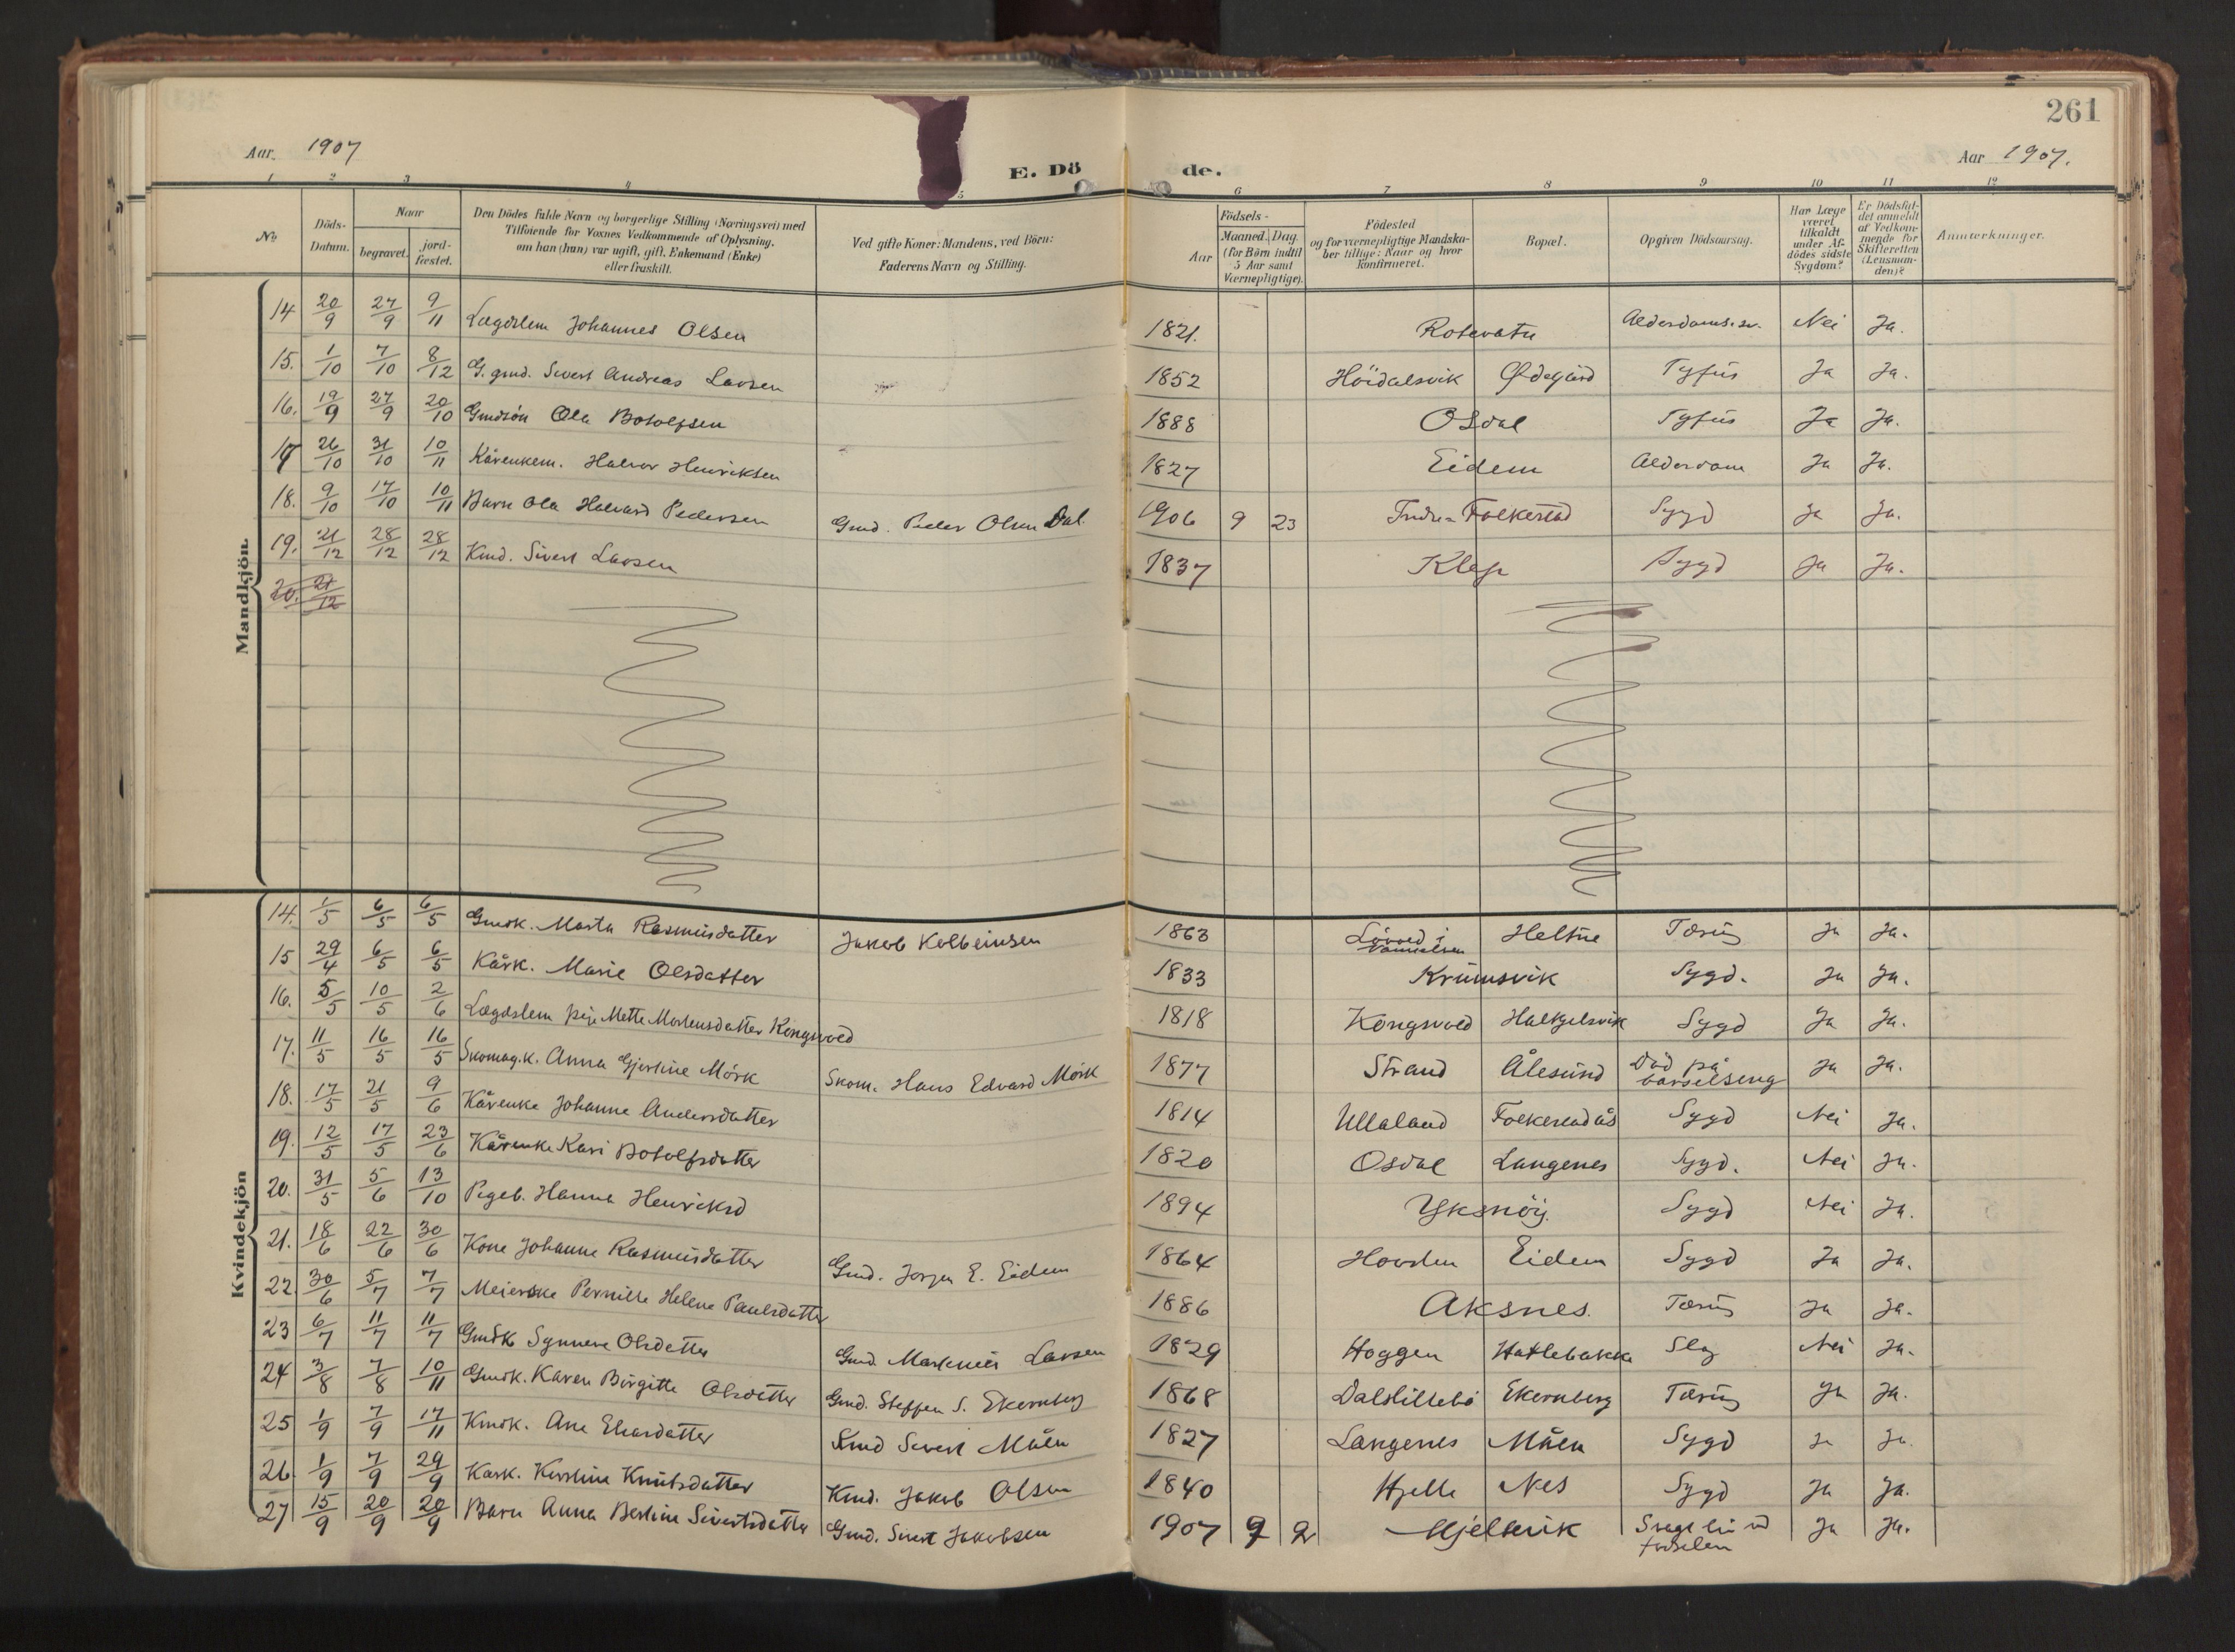 261
Aar. 1907
E. Dö de.
Aar 1907.
1 2 3 4 5 6 7 8 9 10 11 12
No
Döds-Datum.
Naar begravet. jord-fæstet.
Den Dödes fulde Navn og borgerlige Stilling (Næringsvei) med
Tilföiende for Voxnes Vedkommende af Oplysning,
om han (hun) var ugift, gift, Enkemand (Enke)
eller fraskilt.
Ved gifte Koner: Mandens, ved Börn:
Faderens Navn og Stilling.
Födsels-
Aar Maaned. Dag.
(for Börn indtil
5 Aar samt
Værnepligtige).
Födested
og for værnepligtige Mandska-
ber tillige: Naar og hvor
konfirmeret.
Bopæl.
Opgiven Dödsaarsag.
Har Læge
været
tilkaldt
under Af-
dödes sidste
Sygdom?
Er Dödsfal-
det anmeldt
af Vedkom-
mende for
Skifteretten
(Lensman-
den)?
Anmærkninger.
Mandkjön.
14 20/9 27/9 9/11 Lægdslem Johannes Olsen 1821. Rotevatn Alderdoms.sv. Nei Ja.
15. 1/10 7/10 8/12 G.gmd. Sivert Andreas Larsen 1852 Höidalsvik Ødegård Tyfus Ja Ja.
16. 19/9 27/9 20/10 Gmdsön Ola Botolfsen 1888 Osdal Tyfus Ja Ja.
17 26/10 31/10 10/11 Kårenkem. Halvor Henriksen 1827 Eidem Alderdom Ja Ja.
18. 9/10 17/10 10/11 Barn Ola Halvard Pedersen Gmd. Peder Olsen Dal. 1906 9 23 Indre-Folkestad Sygd Ja Ja.
19. 21/12 28/12 28/12 Kmd. Sivert Larsen 1837 Klep Sygd Ja Ja.
20. 21/12
Kvindekjön
14. 1/5 6/5 6/5 Gmdk. Marta Rasmusdatter Jakob Kolbeinsen 1863 Lövold i Vannelven Heltne Tæring Ja Ja.
15 29/4 6/5 6/5 Kårk. Marie Olsdatter 1833 Krumsvik Sygd. Ja Ja.
16. 5/5 10/5 2/6 Lægdslem pige Mette Mortensdatter Kongsvold 1818 Kongsvold Halkjelsvik Sygd Ja Ja.
17. 11/5 16/5 16/5 Skomag.k. Anna Gjertine Mörk Skom. Hans Edvard Mörk 1877 Strand Ålesund Död på barselseng Ja Ja.
18. 17/5 21/5 9/6 Kårenke Johanne Andersdatter 1814 Ullaland Folkestadås Sygd Nei Ja.
19. 12/5 17/5 23/6 Kårenke Kari Botolfsdatter 1820 Osdal Langenes Sygd. Nei Ja.
20. 31/5 5/6 13/10 Pigeb. Hanna Henriksd 1894 Yksnöy. Sygd Nei Ja.
21. 18/6 22/6 30/6 Kone Johanne Rasmusdatter Gmd. Jorgen E. Eidem 1864 Hovden Eidem Sygd Ja Ja.
22. 30/6 5/7 7/7 Meierske Pernille Helene Paulsdatter 1886 Aksnes. Tæring Ja Ja.
23 6/7 11/7 11/7 Gmdk Synneve Olsdatter Gmd. Markusies Larsen 1829 Hoggen Hatlebakke Slag Nei Ja.
24 3/8 7/8 10/11 Gmdk. Karen Birgitte Olsdatter Gmd. Steffen S. Ekornberg 1868 Dalslillebö Ekornberg Tæring Ja Ja.
25 1/9 7/9 17/11 Kmdk. Ane Eliasdatter Kmd Sivert Måen 1827 Langenes Måen Sygd Ja Ja.
26. 1/9 7/9 29/9 Kårk. Kirstine Knutsdatter Kmd. Jakob Olsen 1840 Hjelle Nes Sygd Ja Ja.
27 15/9 20/9 20/9 Barn Anna Bertine Sivertsdatter Gmd. Sivert Jakobsen 1907 9 2 Mjelkevik Svagt liv ved födselen Ja Ja.